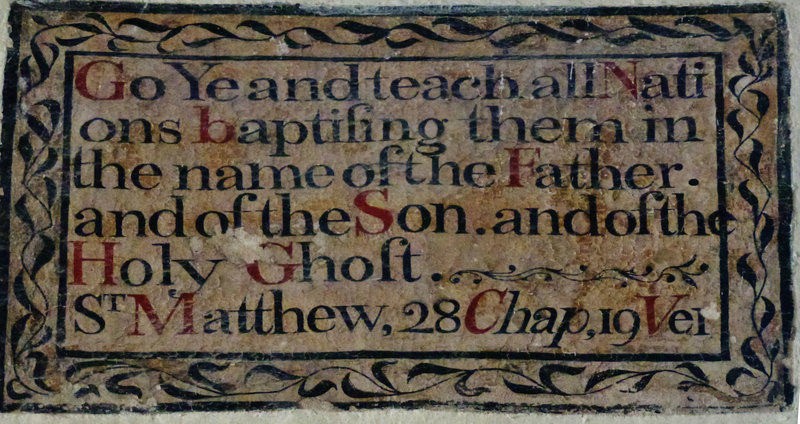 Go Ye and teach all Nati
ons baptiſing them in
the name of the Father.
and of the Son. and of the
Holy Ghoſt.
St Matthew, 28 Chap, 19 Ver